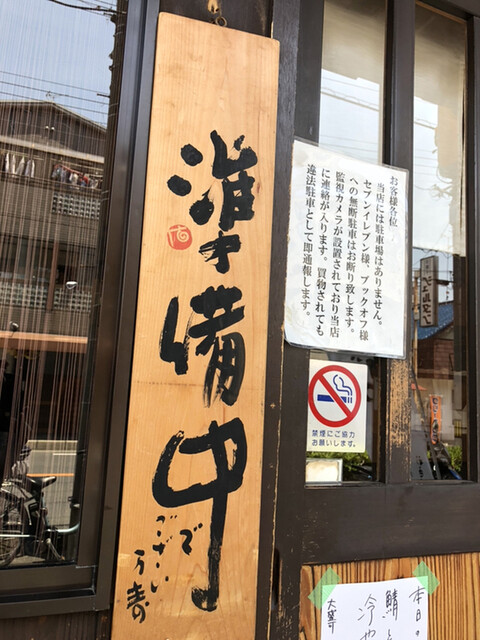 準備中で
ございい
万寿
お客様各位
当店には駐車場はありません。
セブンイレブン様、ブックオフ様
への無断駐車はお断り致します。
監視カメラが設置されており当店
に連絡が入ります。買物されても
違法駐車として即通報します。
禁煙にご協力
お願いします。
本日。
鯖と
冷や
大盛